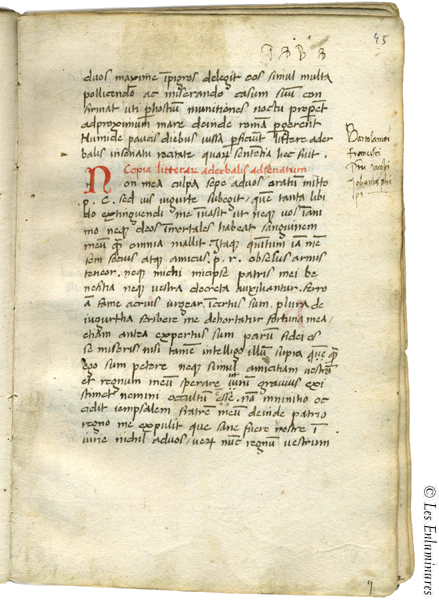 45
duos maxime īpigros delegit eos simul multa
pollicendo ac miserando casum suū con
firmat uti p hostiū munitiones noctu propet
ad proximum mare deinde romā pgerent
Numide paucis diebus iussa pficiūt littere ader
balis in senatu recitate quarū sententia hec fuit.
Copia litterarū aderbalis ad senatum
Non mea culpa sepe ad vos oratum mitto
p. c. sed vis iugurte subegit, que tanta libi
do extinguendi me ivasit ut neqꝫ vos īani
mo neqꝫ deos imortales habeat sanguinem
meū qꝫ omnia mallit Itaqꝫ quintum iā mē
sem socius atqꝫ amicus. p. r. obsessus armis
teneor. neqꝫ michi micipse patris mei be
nefitia neqꝫ vestra decreta auxiliantur. ferro
a fame acrius urgear īcertus sum. plura de
iugurtha scribere me dehortatur fortuna mea /
etiam antea expertus sum parū fidei es
se miseris nisi tamē intelligo illū supra quā qꝫ
ego sum petere neqꝫ simul amicitiam vestrā
et regnum meū sperare utrū gravius exi
stimet nemini occultū esse. nā in initio oc
cidit iempsalem fratrē meū deinde patrio
regno me expulit que sane fuere nostre ī
iurie nichil ad vos, verū nūc regnum vestrum
Bartolameo
Francisci
© Les Enluminures